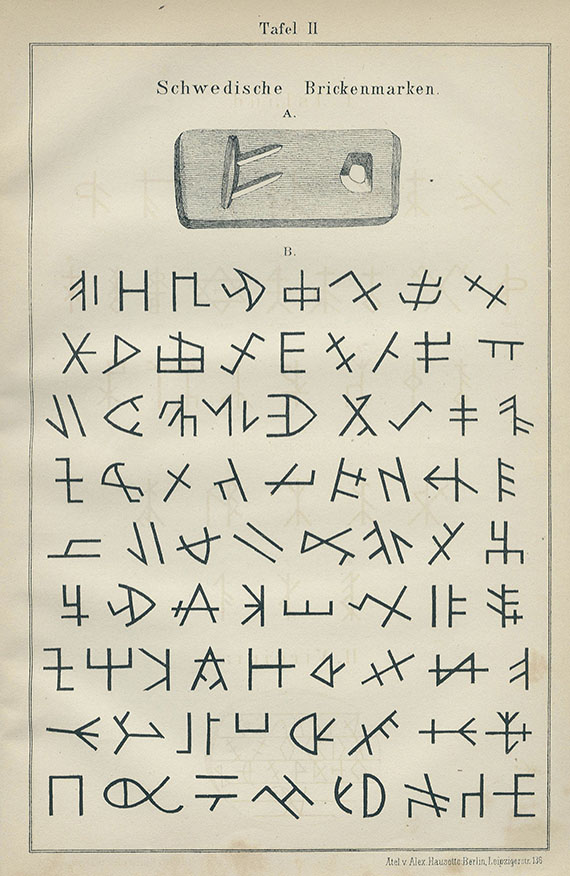 Tafel II
Schwedische Brickenmarken.
A.
B.
Atel v. Alex. Hausotte Berlin, Leipzigerstr. 136